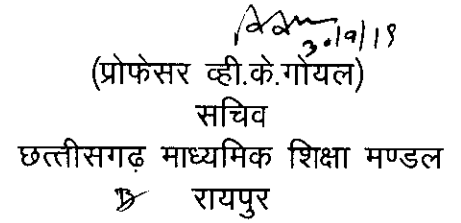 30/9/19
(प्रोफेसर व्ही.के.गोयल)
सचिव
छत्तीसगढ़ माध्यमिक शिक्षा मण्डल
रायपुर